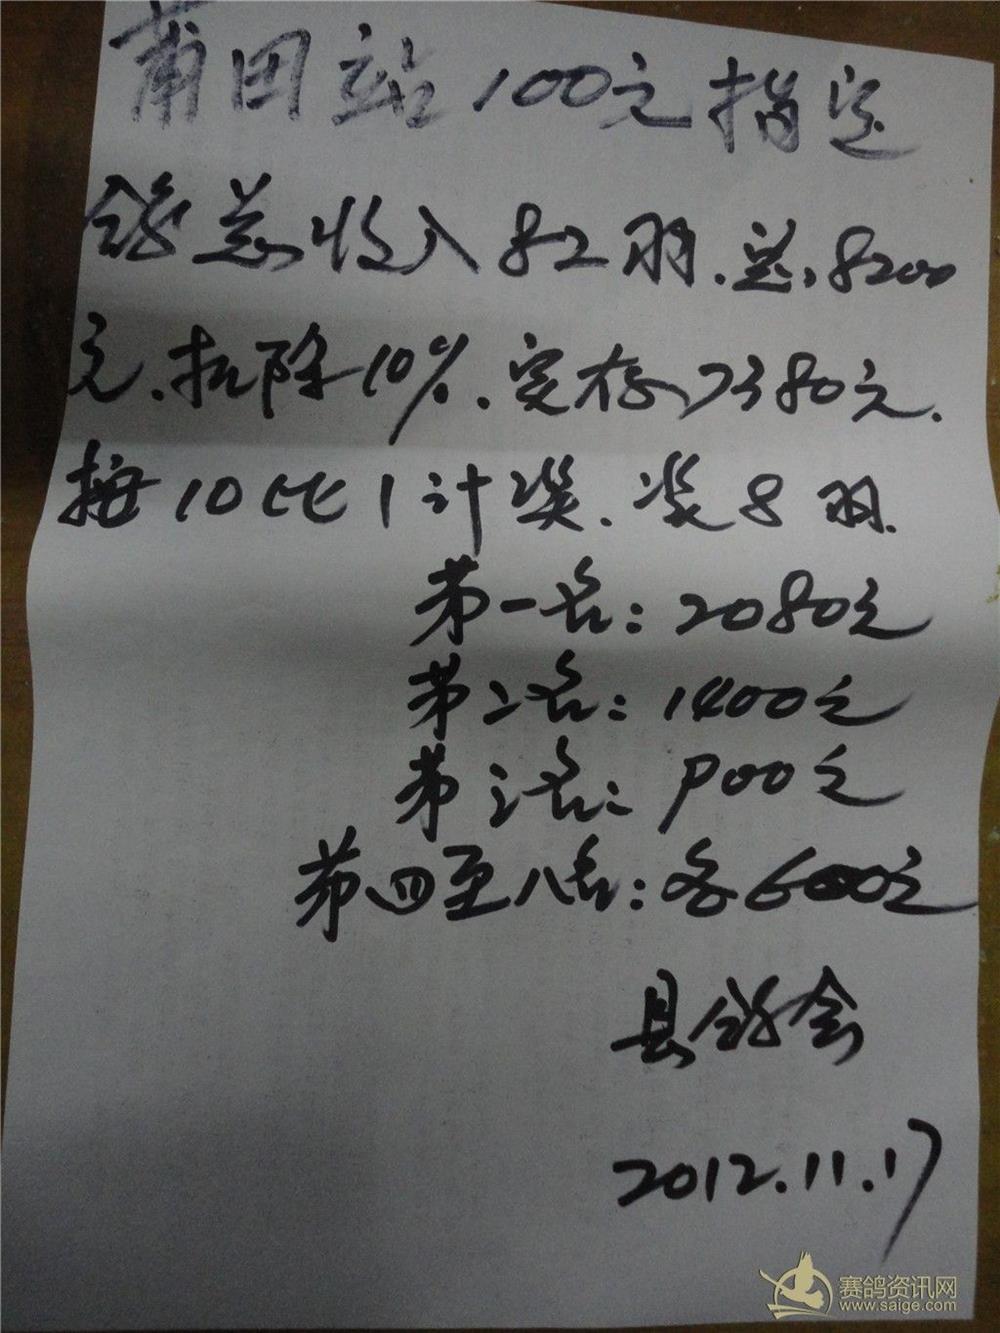 莆田站100元指定
鸽总收入82羽.总8200
元.扣除10%.实存7380元.
按10比1计奖.奖8羽.
第一名:2080元
第二名:1400元
第三名:900元
第四至八名:各600元
县鸽会
2012.11.17
赛鸽资讯网
www.saige.com